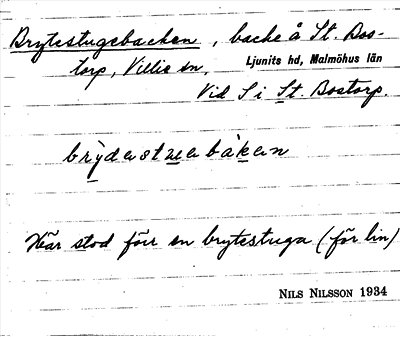 Brytestugebacken, backe å St. Bos-
torp, Villie sn, Ljunits hd, Malmöhus län
Vid S i St. Bostorp.
brydastuebákan
Här stod förr en brytestuga (för lin)
NILS NILSSON 1934